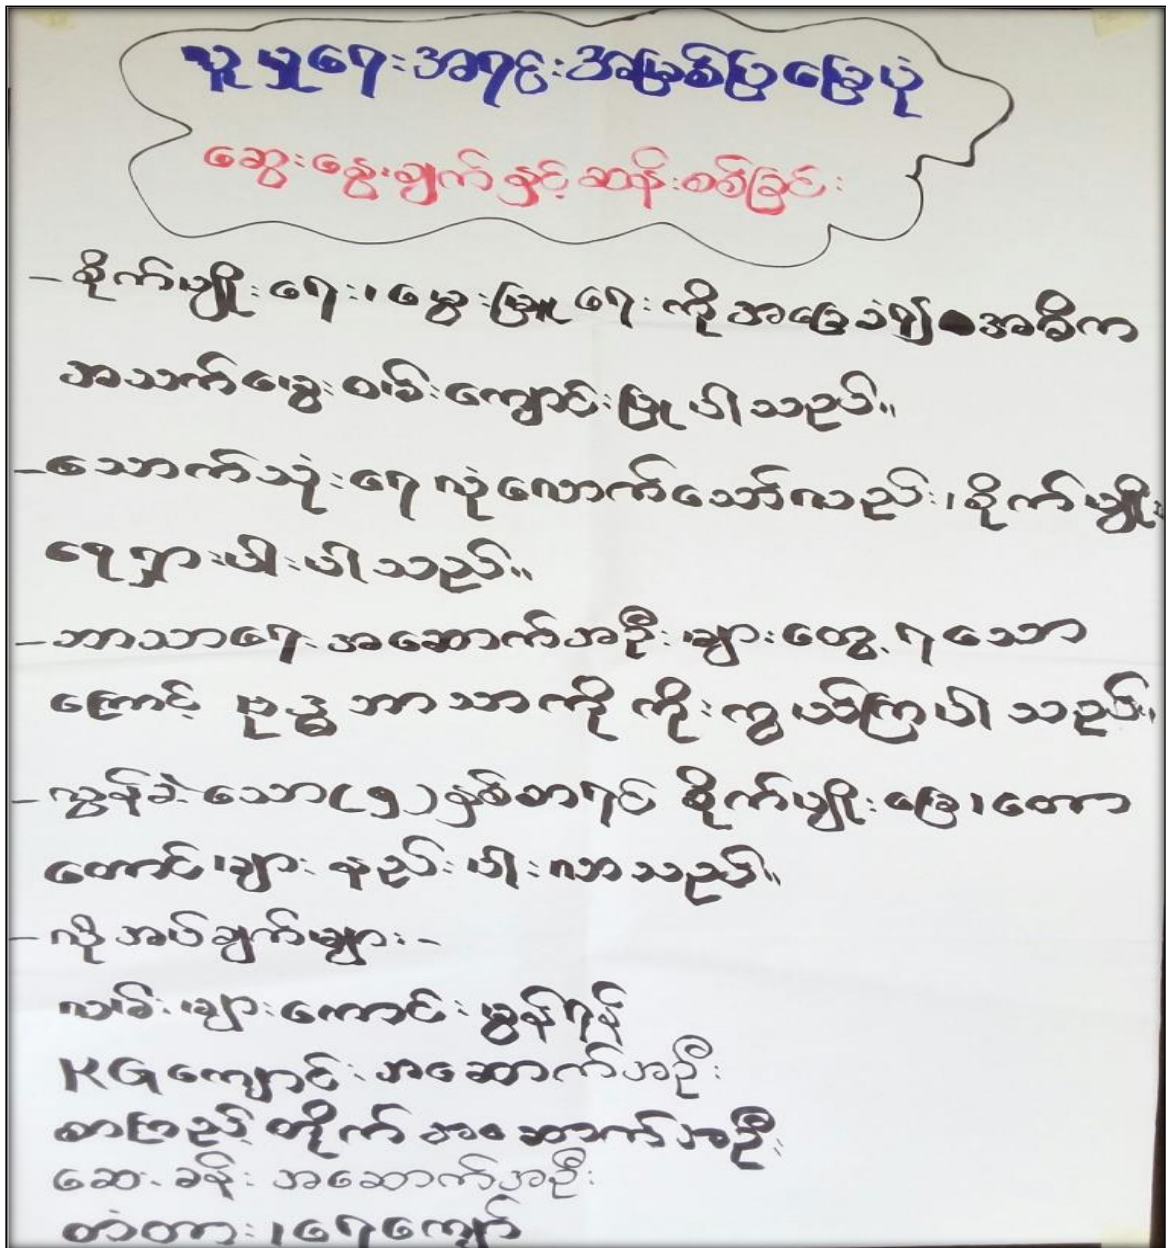 လူမှုရေးအရင်းအမြစ်ပြမြေပုံ
ဆွေးနွေးချက်နှင့်ဆန်းစစ်ခြင်း
- စိုက်ပျိုးရေး၊ မွေးမြူရေးကိုအခြေခံ၍အဓိက
အသက်မွေးဝမ်းကျောင်းပြုပါသည်။
- သောက်သုံးရေလုံလောက်သော်လည်း၊ စိုက်ပျိုး
ရေရှားပါးပါသည်။
- ဘာသာရေးအဆောက်အဦးများတွေ့ရသော
ကြောင့် ဗုဒ္ဓဘာသာကို ကိုးကွယ်ကြပါသည်။
- လွန်ခဲ့သော(၅)နှစ်စာရင် စိုက်ပျိုးမြေ၊ တော
တောင်များ နည်းပါးလာသည်။
- လိုအပ်ချက်များ -
လမ်းများကောင်းမွန်ရန်
KGကျောင်းအဆောက်အဦး
စာကြည့်တိုက်အဆောက်အဦး
ဆေးခန်းအဆောက်အဦး
တံတား၊ ရေကျော်